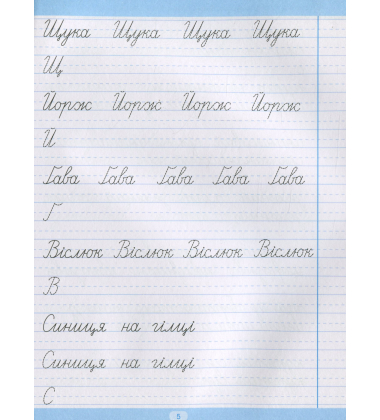 Щука Щука Щука Щука
Щ
Йорж Йорж Йорж Йорж
Й
Ґава Ґава Ґава Ґава Ґава
Ґ
Віслюк Віслюк Віслюк Віслюк
В
Синиця на гілці
Синиця на гілці
С
5